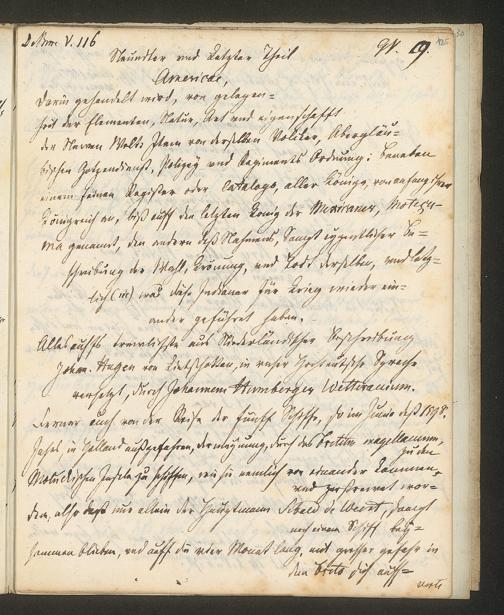 De Bry V. 116
N. 19.
Neundter und Letzter Theil
Americae,
Darin gehandelt wird, von gelegen=
heit der Elementen, Natur, Art und eigenschafft
der Newen Welt: Item von derselben Völcker, Abergläu=
bischen Götzendienst, Policey und Regiments Ordnung: Beneben
einem feinen Register oder Catalogo, aller Könige, von anfang ihres
Königreich an, biß auff den letzten König der Mexicaner, Motezu=
ma genannt, den andern deß Nahmens, Sampt eygentlicher Be=
schreibung der Wahl, Krönung, und Todt derselben, und letz=
lich (sic) was diese Indianer für Krieg wieder ein=
ander geführet haben. –
Alles auffs trewlichste aus Niederländischer Beschreibung
Johan. Hugen von Lintschotten, in unser Hochteutsche Sprache
versetzt, durch Johannem Humbergen Wetteranium.
Ferner auch von der Reise der fünff Schiffe, so im Junio deß 1598.
Jahrs in Holland außgefahren, der meynung, durch das Fretum magellanum,
zu den
Moluckischen Inseln zu schiffen, wie sie nemlich von einander kommen,
und zerstrewet wor=
den, also daß nur allein der Hauptmann Sebald de Weert, sampt
noch einem Schiff bey=
sammen blieben, und auff die vier Monat lang, mit grosser gefahr in
dem Freto sich auff=